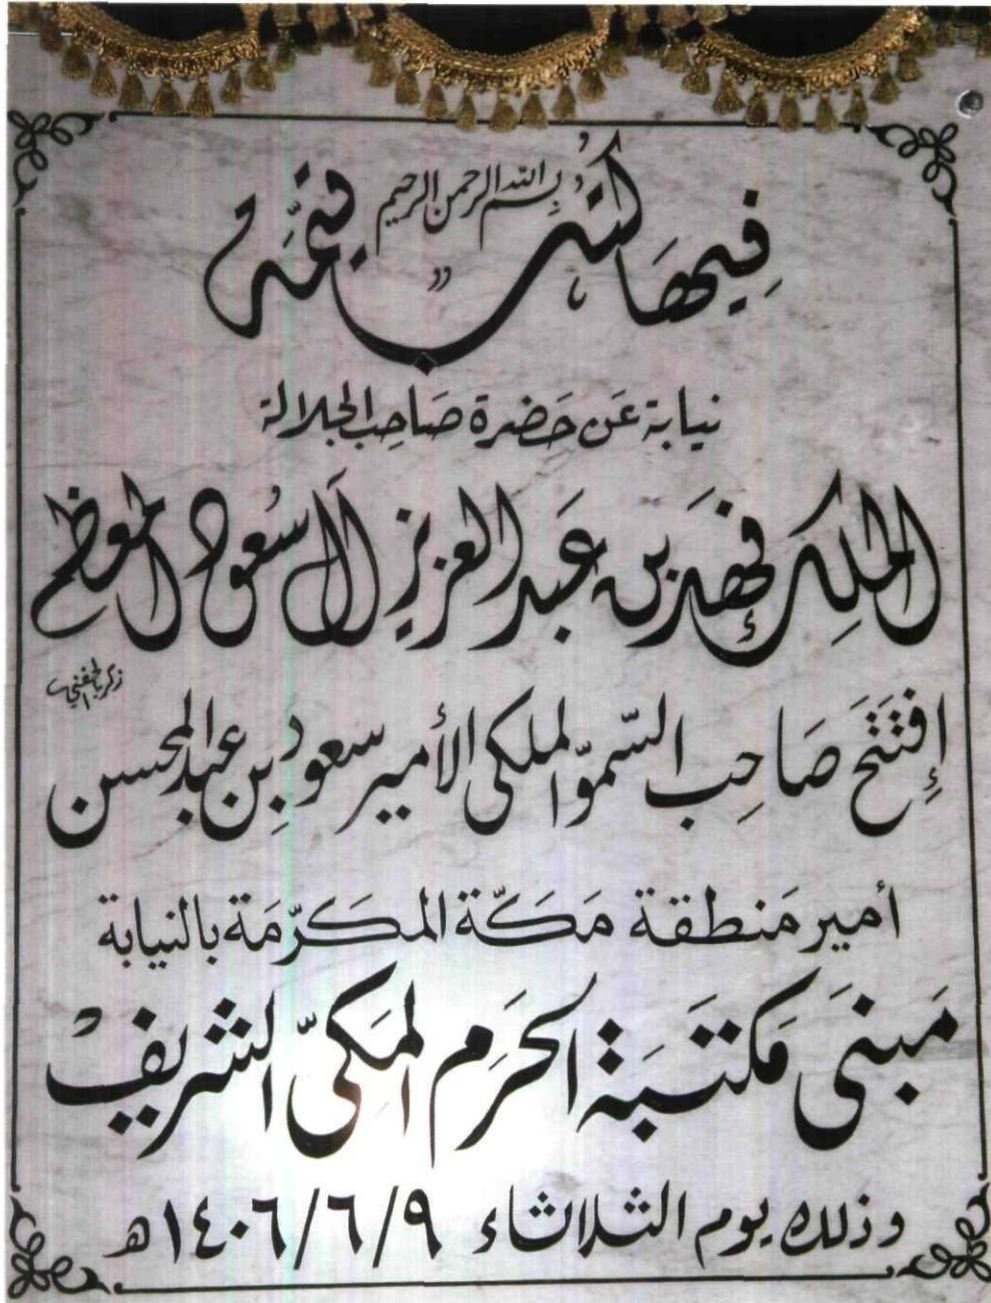 بسم الله الرحمن الرحيم
فِيهَا كُتُبٌ قَيِّمَةٌ
نيابة عَن حَضرة صَاحِب الجلالة
الملِك فهَد بن عَبد العزيز آل سُعود المعظم
إفتَتَح صَاحِب السّموّ الملكى الأمير سعود بِن عبد المحسن
أمير مَنطقة مَكّة المكرّمَة بالنيابة
مَبنى مَكتبَة الحرَم المكىّ الشريف
وذلك يوم الثلاثاء ١٤٠٦/٦/٩هـ